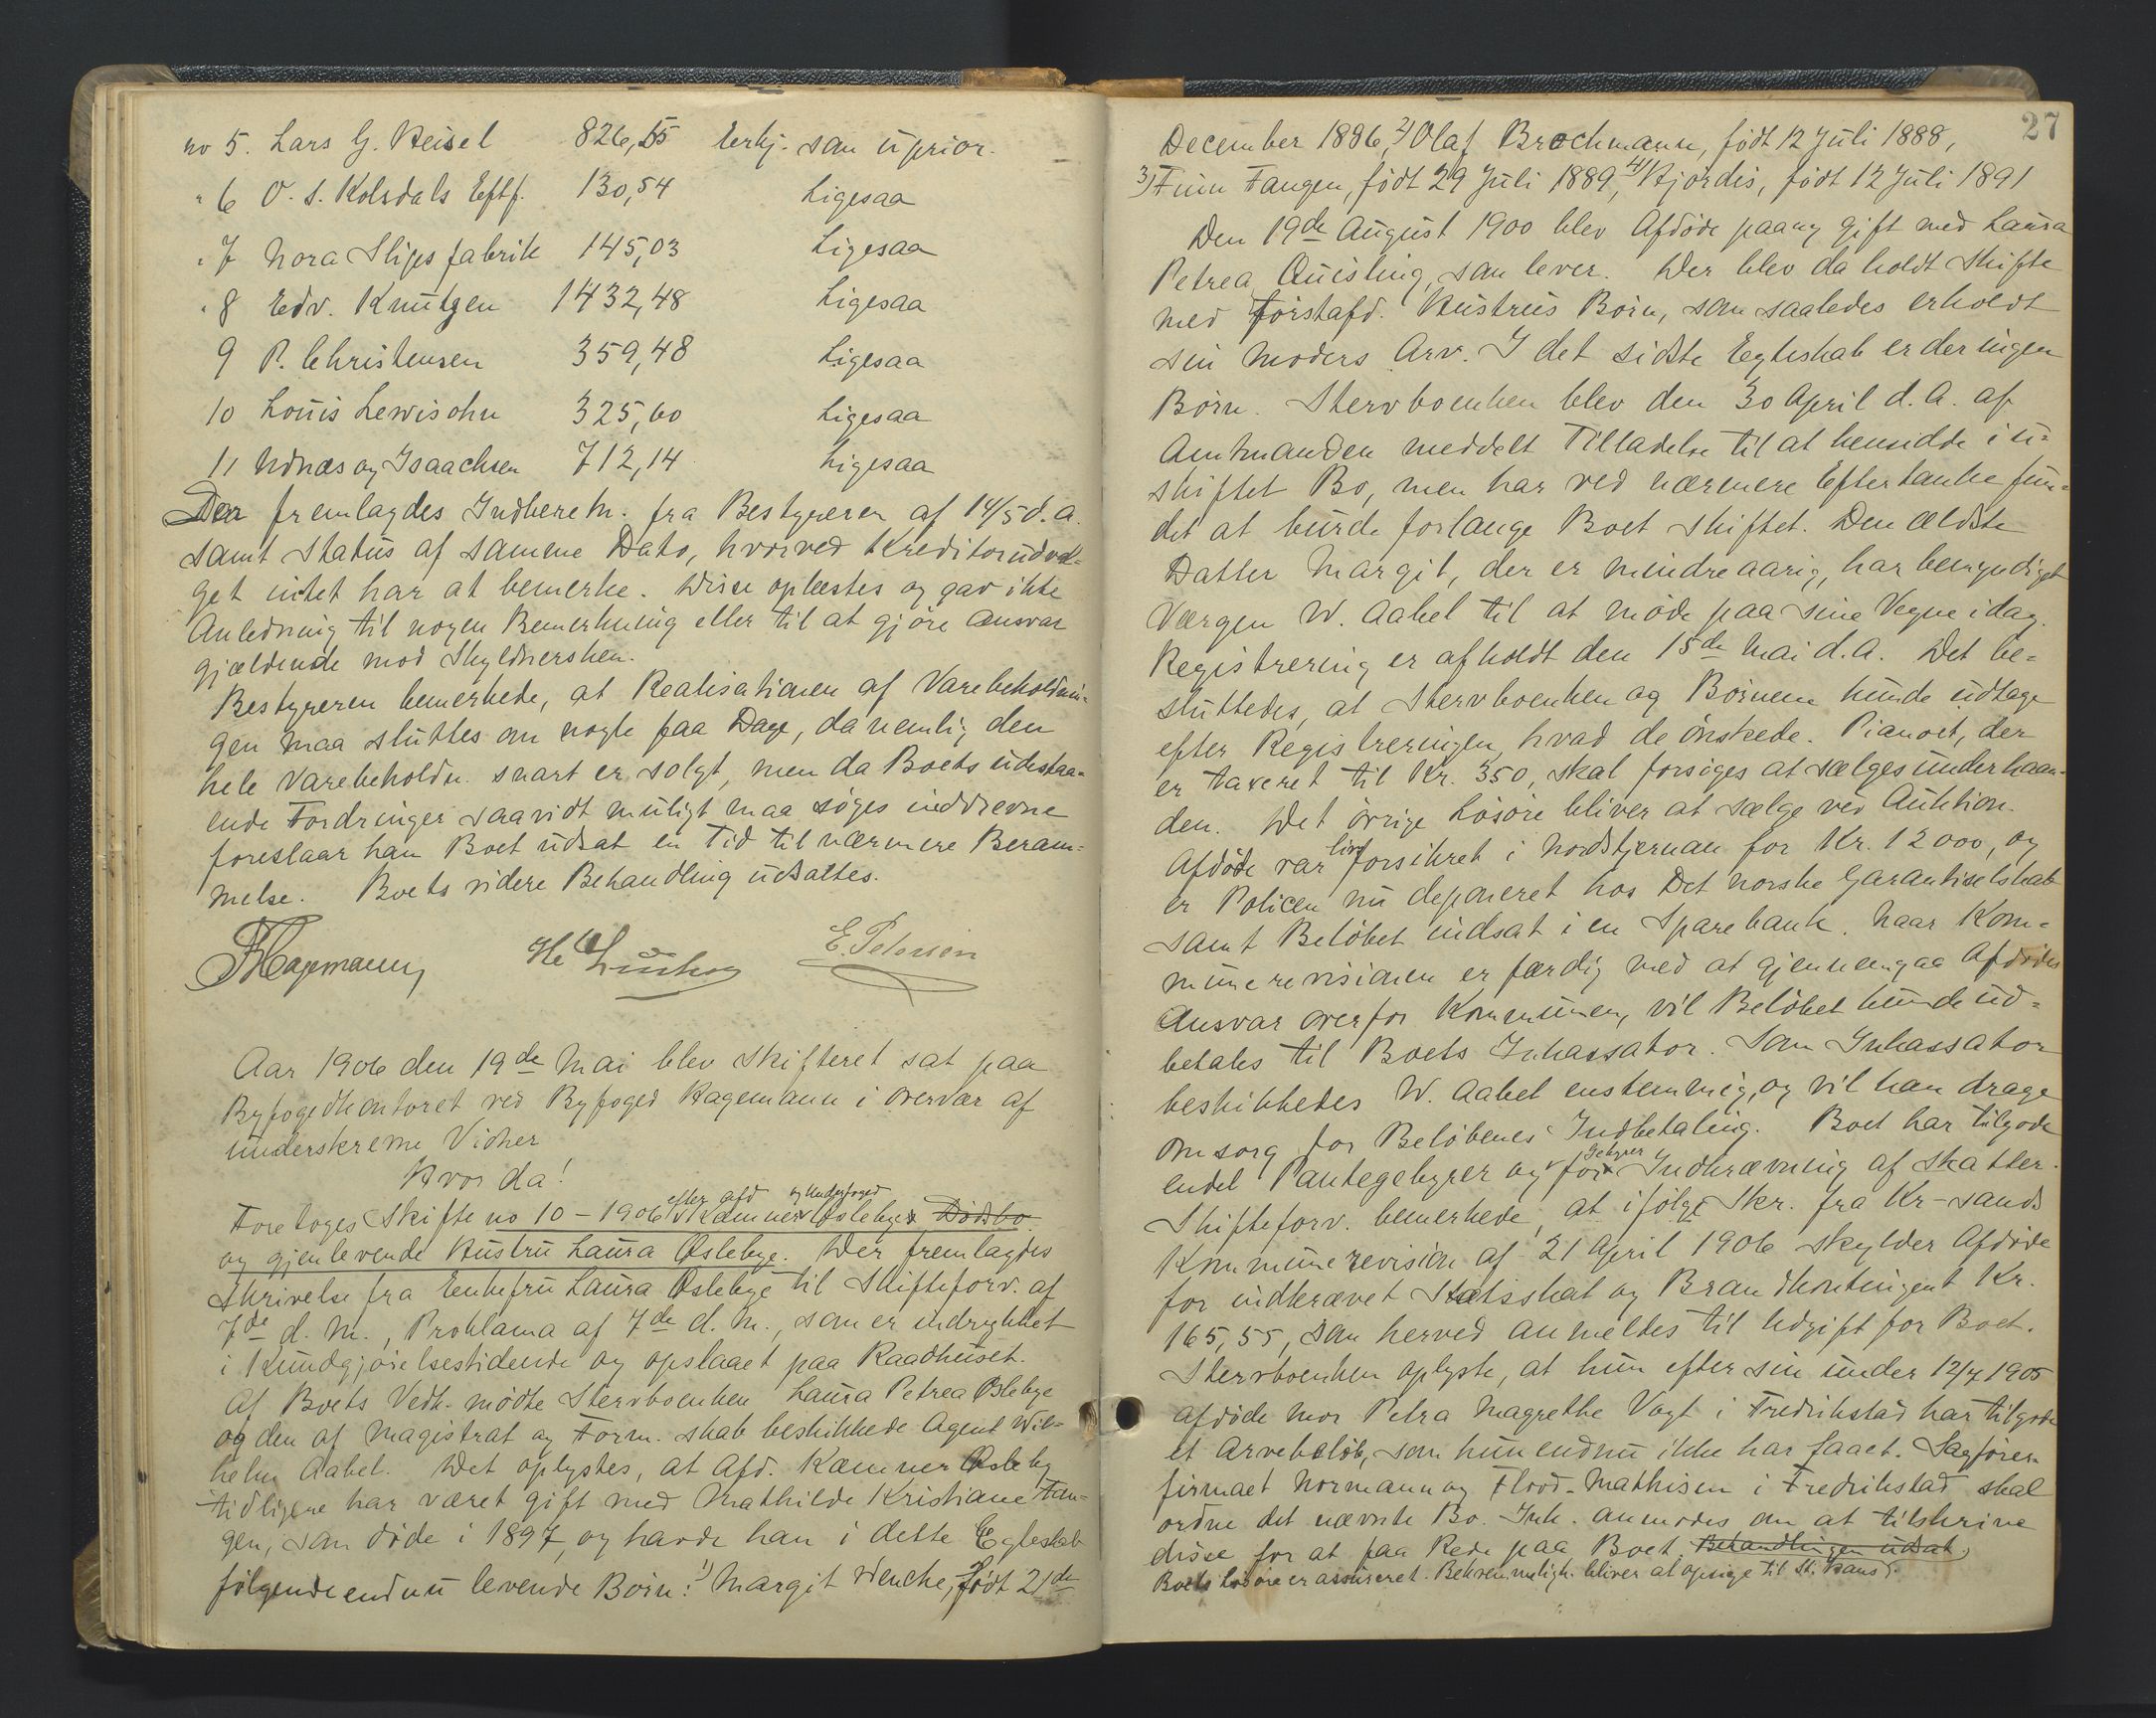 no 5. Lars G. Heisel 826,55 Erkj. som uprior.
" 6 O. S. Kolsdals Eftf. 130,54 Ligesaa
" 7 Nora Slipsfabrik 145,03 Ligesaa
" 8 Edv. Knutzen 1432,48 Ligesaa
9 P. Christensen 359,48 Ligesaa
10 Louis Lewisohn 325,60 Ligesaa
11 Udnæs og Isaachsen 712,14 Ligesaa
Der fremlagdes Indberetn. fra Bestyreren af 14/5 d. a.
samt Status af samme Dato, hvorved Kreditorudval-
get intet har at bemerke. Disse oplæstes og gav ikke
Anledning til nogen Bemerkning eller til at gjöre Ansvar
gjældende mod Skyldnersken.
Bestyreren bemerkede, at Realisationen af Varebeholdnin-
gen maa sluttes om nogle faa Dage, da nemlig den
hele Varebeholdn. snart er solgt, men da Boets udestaa-
ende Fordringer saavidt muligt maa söges inddrevne
foreslaar han Boet udsat en Tid til nærmere Beram-
melse. Boets videre Behandling udsattes.
Hagemann E. Petersen
Aar 1906 den 19de Mai blev Skifteret sat paa
Byfogedkontoret ved Byfoged Hagemann i overvær af
underskrevne Vidner
Hvor da!
Foretoges Skifte no 10 - 1906 efter afd Kæmner og Underfoged Oslebye Dödsbo
og gjenlevende Hustru Laura Oslebye. Der fremlagdes
Skrivelse fra Enkefru Laura Oslebye til Skifteforv. af
7de d. M., Proklama af 7de d. M., som er indrykket
i Kundgjörelsestidende og opslaaet paa Raadhuset.
Af Boets Vedk. mödte Stervboenken Laura Petrea Oslebye
og den af Magistrat og Form.skab beskikkede Agent Wil-
helm Aabel. Det oplystes, at Afd. Kæmner Osleby
tidligere har været gift med Mathilde Kristiane Fan-
gen, som döde i 1897, og havde han i dette Egteskab
fölgende endnu levende Börn: 1) Margit Wenche, födt 21de
27
December 1886, 2) Olaf Brochmann, födt 12 Juli 1888,
3) Finn Fangen, födt 29 Juli 1889, 4) Hjördis, födt 12 Juli 1891
Den 19de August 1900 blev Afdöde paany gift med Laura
Petrea Quisling, som lever. Der blev da holdt Skifte
med förstafd. Hustrus Börn, som saaledes erholdt
sin Moders Arv. I det sidste Egteskab er der ingen
Börn. Stervboenken blev den 30 April d. A. af
Amtmanden meddelt Tilladelse til at hensidde i u-
skiftet Bo, men har ved nærmere Eftertanke fun-
det at burde forlange Boet skiftet. Den ældste
Datter Margit, der er mindreaarig, har bemyndiget
Værgen W. Aabel til at möde paa sine Vegne idag.
Registrering er afholdt den 15de Mai d. A. Det be-
sluttedes, at Stervboenken og Börnene kunde udtage
efter Registreringen, hvad de önskede. Pianoet, der
er taxeret til Kr. 350, skal forsöges at sælges underhaan-
den. Det övrige Lösöre bliver at sælge ved Auktion.
Afdöde var livsforsikret i Nordstjernan for Kr. 12000, og
er Policen nu deponeret hos Det norske Garantiselskab
samt Belöbet indsat i en Sparebank. Naar Kom-
munerevisionen er færdig med at gjennemgaa Afdödes
Ansvar overfor Kommunen, vil Belöbet kunde ud-
betales til Boets Inkassator. Som Inkassator
beskikkedes W. Aabel enstemmig, og vil han drage
Omsorg for Belöbenes Indbetaling. Boet har tilgode
endel Pantegebyrer og Gebyrer for Indkrævning af Skatter.
Skifteforv. bemerkede, at ifölge Skr. fra Kr-sands
Kommunerevision af 21 April 1906 skylder Afdöde
for indkrævet Statsskat og Brandkontingent Kr.
165,55, som herved anmeldes til Udgift for Boet.
Stervboenken oplyste, at hun efter sin under 12/7 1905
afdöde Mor Petra Magrethe Vogt i Fredrikstad har tilgode
et Arvebelöb, som hun endnu ikke har faaet. Sagförer-
firmaet Normann og Flood-Mathisen i Fredrikstad skal
ordne det nævnte Bo. Ink. anmodes om at tilskrive
disse for at faa Rede paa Boet. Behandlingen udsat.
Boets Lösöre er assureret. Bekvemmeligh. bliver at opsige til St. Hans.